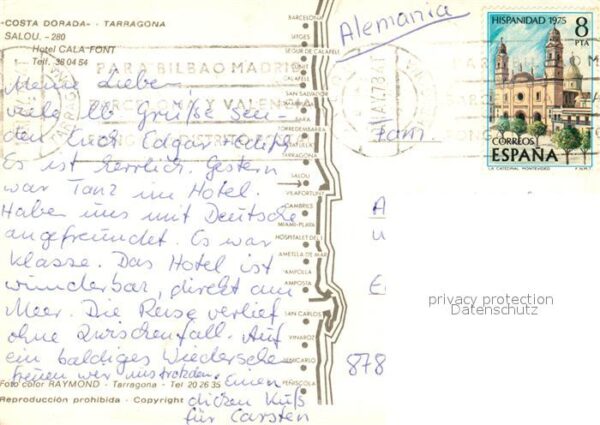 «COSTA DORADA» - TARRAGONA
SALOU. - 280
Hotel CALA-FONT
Telf. 38 04 54
Meine Lieben,
viele lb Grüße sen-
den Euch Edgar
Es ist herrlich. Gestern
war Tanz im Hotel.
Haben uns mit Deutsche
angefreundet. Es war
klasse. Das Hotel ist
wunderbar, direkt am
Meer. Die Reise verlief
ohne Zwischenfall. Auf
ein baldiges Wiedersehen
freuen wir uns
Einen
dicken Kuß
für Carsten
Foto color RAYMOND - Tarragona - Tel 20 26 35
Reproducción prohibida - Copyright
BARCELONA
SITGES
SEGUR DE CALAFELL
CALAFELL
SAN SALVADOR
TORREDEMBARRA
TARRAGONA
SALOU
VILAFORTUNY
CAMBRILS
MIAMI-PLAYA
HOSPITALET DEL I.
AMETLLA DE MAR
AMPOLLA
AMPOSTA
SAN CARLOS
VINAROZ
BENICARLO
PEÑISCOLA
PARA BILBAO MADRID
BARCELONA Y VALENCIA
PONGA DISTRITO
Alemania
Fam.
A
878
HISPANIDAD 1975
8
PTA
CORREOS
ESPAÑA
LA CATEDRAL, MONTEVIDEO
F.N.M.T.
privacy protection
Datenschutz